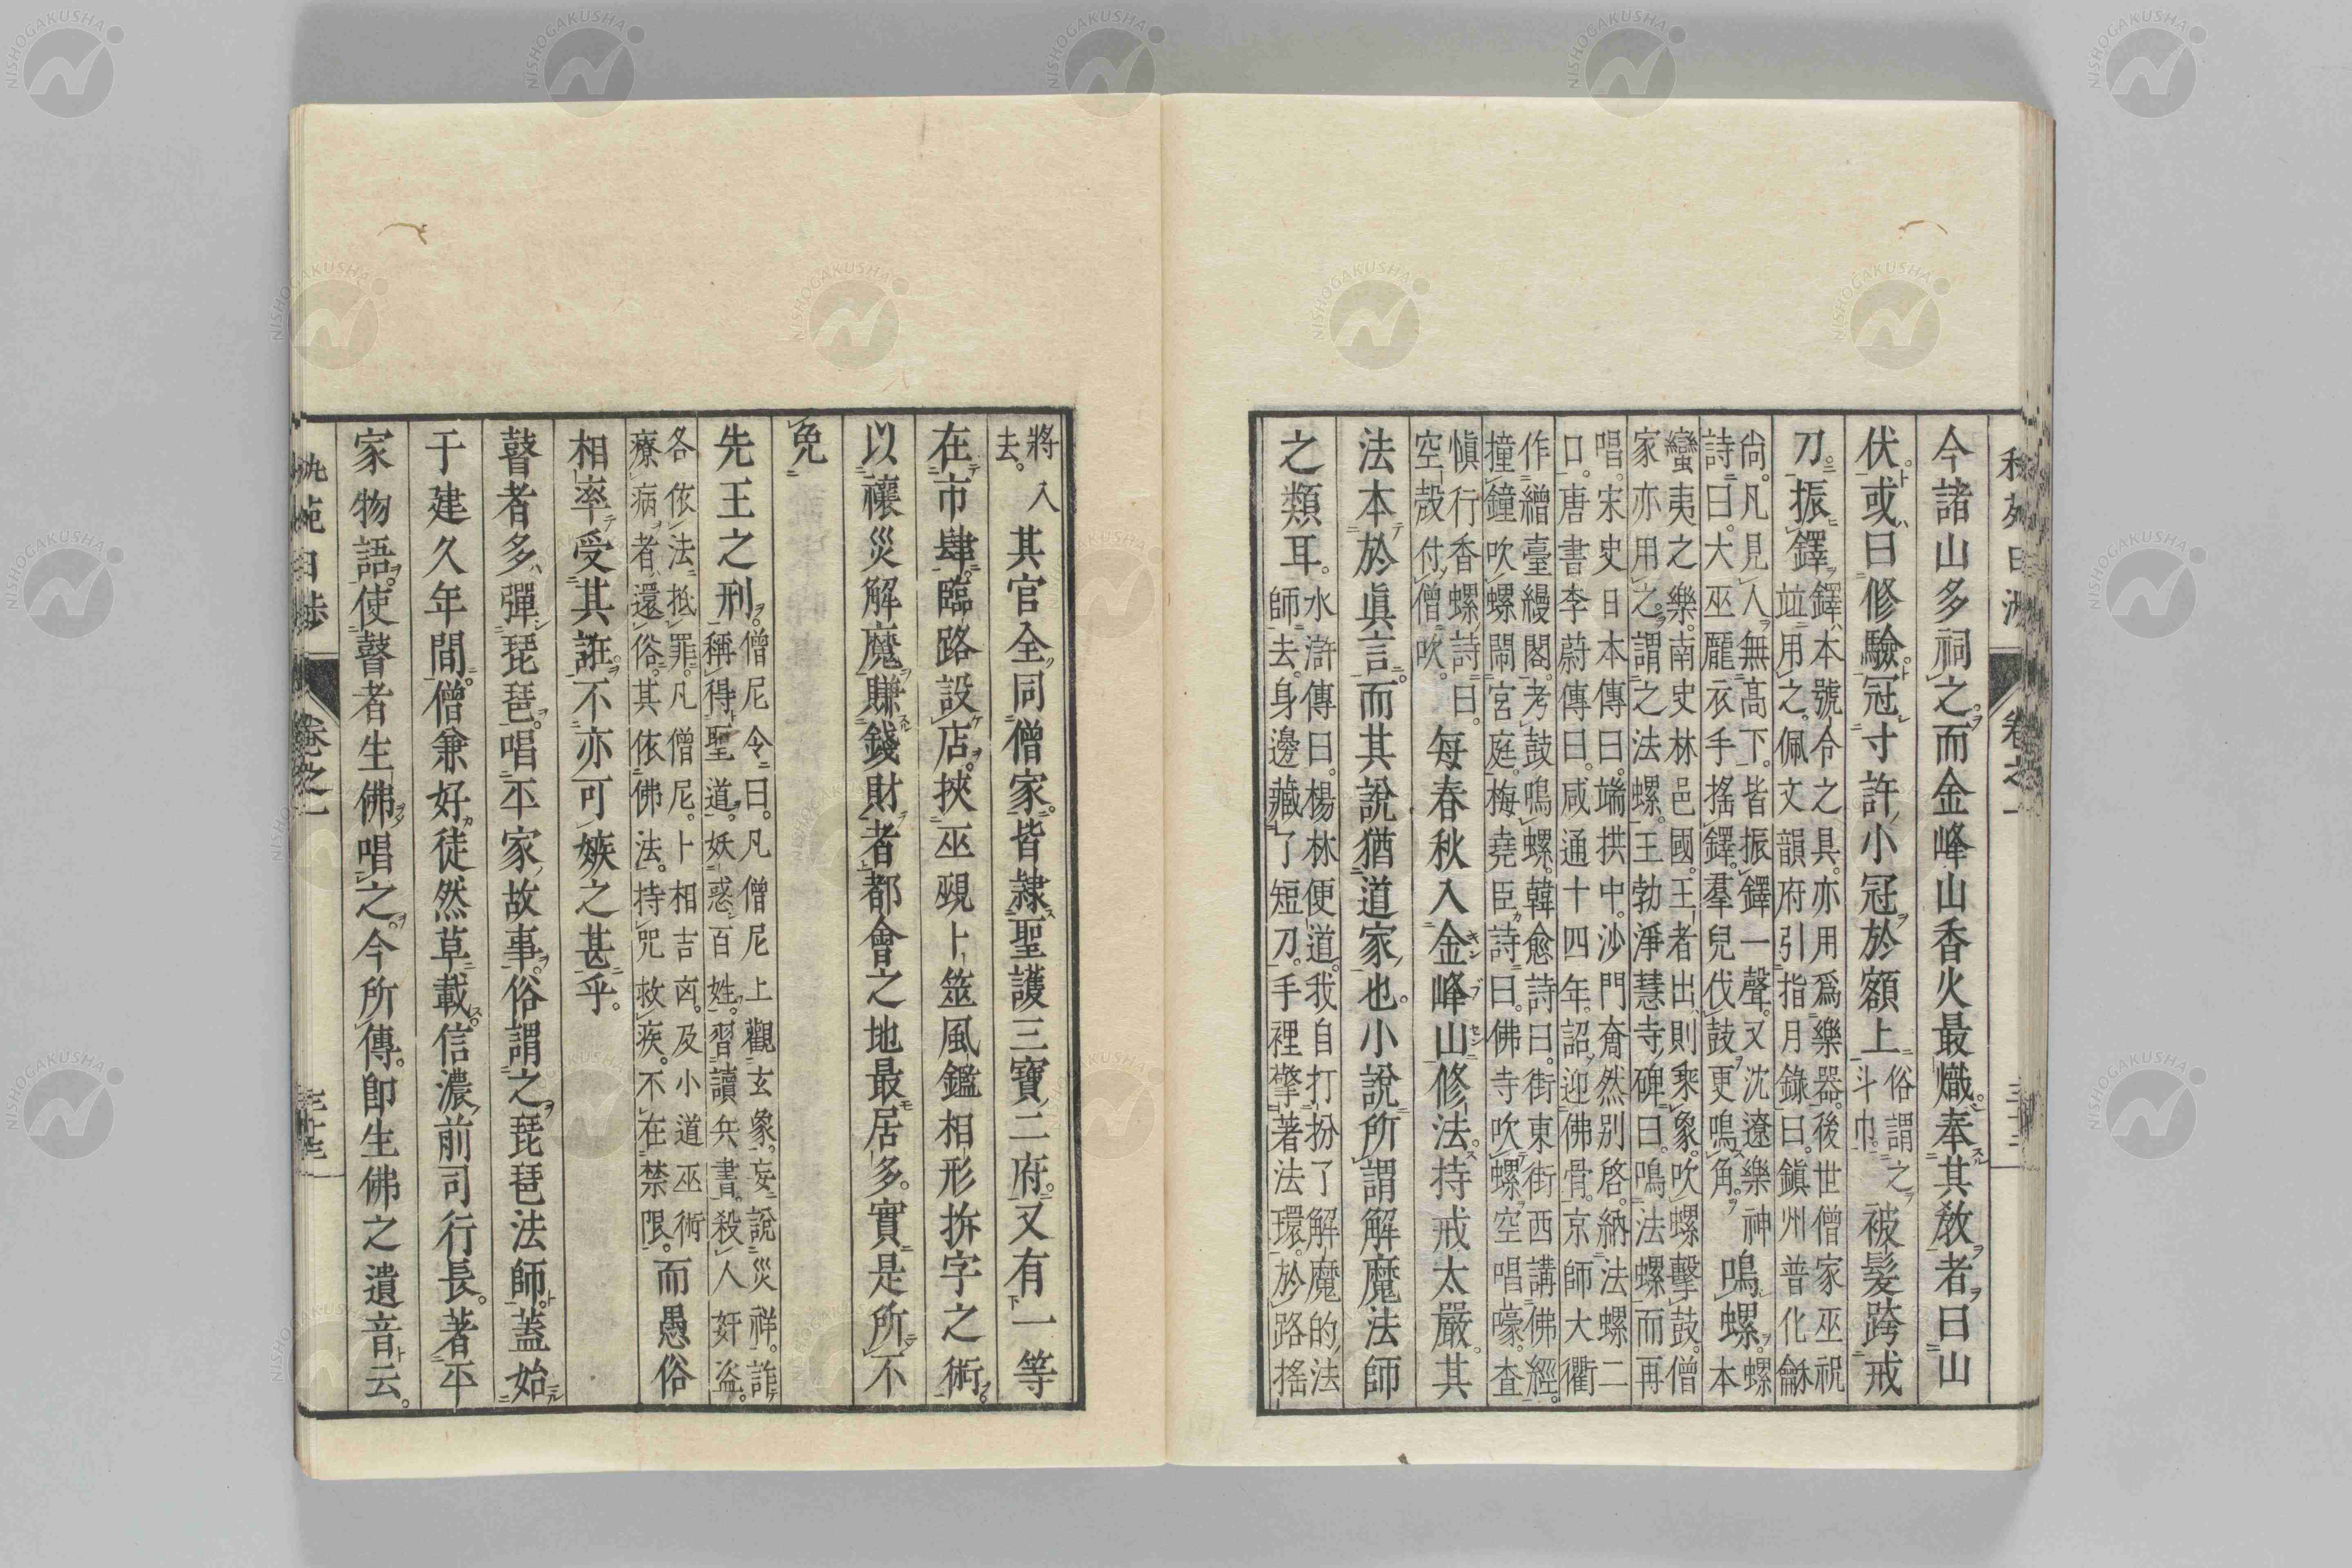 今諸山多祠之而金峰山香火最熾奉其教者曰山
伏或曰修驗冠寸許小冠於額上俗謂之斗巾被髮跨戒
刀振鐸鐸本號令之具亦用爲樂器後世僧家巫祝竝用之佩文韻府引指月錄曰鎭州普化龢
尙凡見人無高下皆振鐸一聲又沈遼樂神詩曰大巫龎衣手搖鐸羣兒伐鼓更鳴角鳴螺螺本
蠻夷之樂南史林邑國王者出則乘象吹螺擊鼓僧家亦用之謂之法螺王勃淨慧寺碑曰鳴法螺而再
唱宋史日本傳曰端拱中沙門奝然別啓納法螺二口唐書李蔚傳曰咸通十四年詔迎佛骨京師大衢
作繒臺縵閣考鼓鳴螺韓愈詩曰街東街西講佛經撞鐘吹螺鬧宮庭梅堯臣詩曰佛寺吹螺空唱嚎査
愼行香螺詩曰空殼付僧吹每春秋入金峰山修法持戒太嚴其
法本於眞言而其說猶道家也小說所謂解魔法師
之類耳水滸傳曰楊林便道我自打扮了解魔的法師去身邊藏了短刀手裡擎著法環於路搖
卷之一
將入去其官全同僧家皆隷聖護三寶二府又有一等
在市肆臨路設店挾巫覡卜筮風鑑相形拆字之術
以禳災解魔賺錢財者都會之地最居多實是所不
免
先王之刑僧尼令曰凡僧尼上觀玄象妄說災祥詐稱得聖道妖惑百姓習讀兵書殺人奸盜
各依法抵罪凡僧尼卜相吉凶及小道巫術療病者還俗其依佛法持咒救疾不在禁限而愚俗
相率受其誑不亦可嫉之甚乎
瞽者多彈琵琶唱平家故事俗謂之琵琶法師蓋始
于建久年間僧兼好徒然草載信濃前司行長著平
家物語使瞽者生佛唱之今所傳卽生佛之遺音云
卷之一
NISHOGAKUSHA